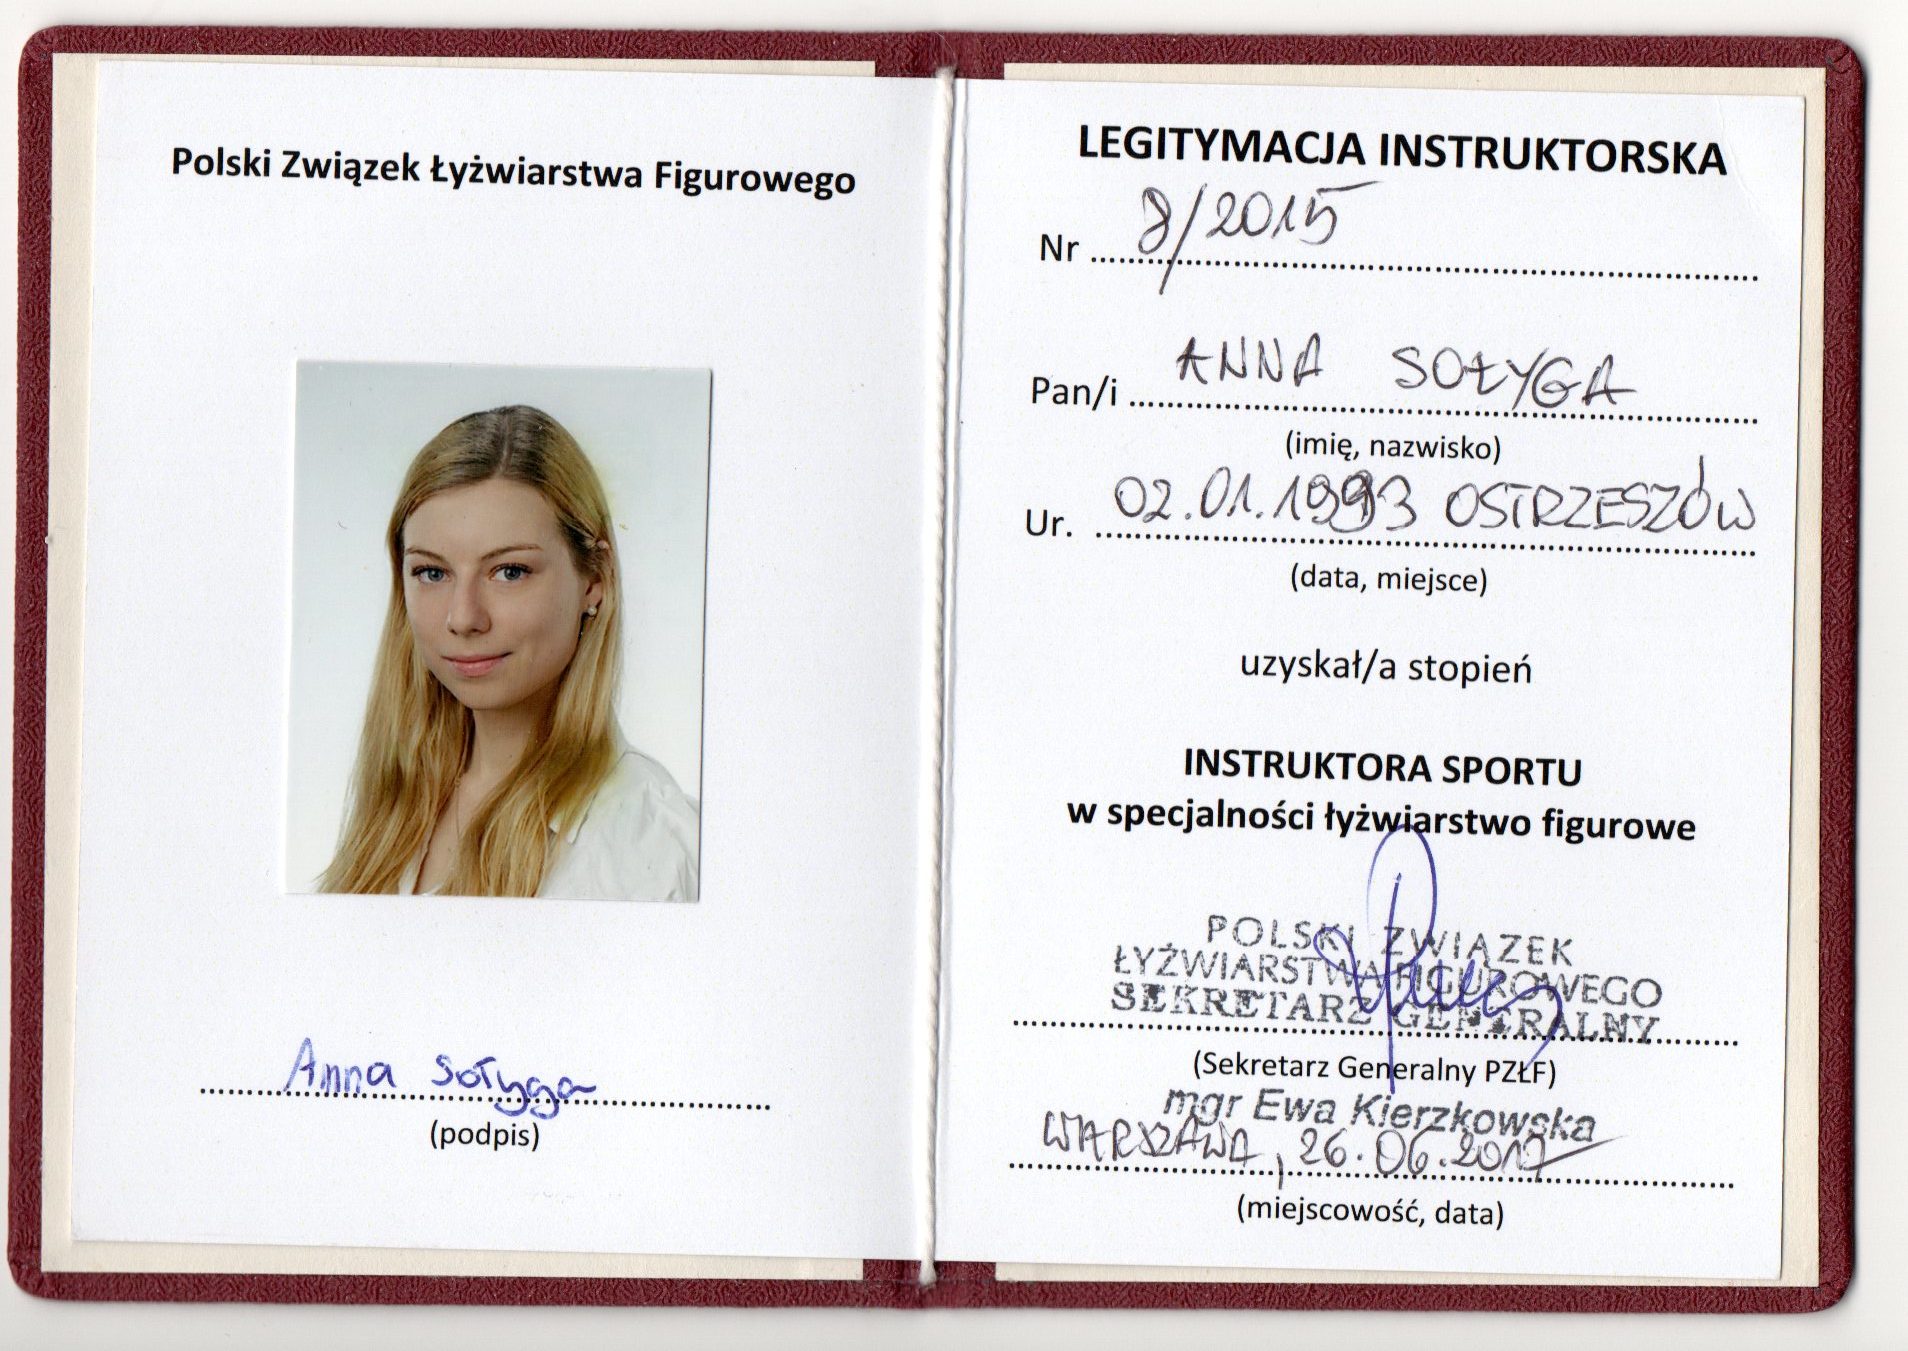 Polski Związek Łyżwiarstwa Figurowego
Anna Sołyga
(podpis)
LEGITYMACJA INSTRUKTORSKA
Nr 8/2015
Pan/i ANNA SOŁYGA
(imię, nazwisko)
Ur. 02.01.1993 OSTRZESZÓW
(data, miejsce)
uzyskał/a stopień
INSTRUKTORA SPORTU
w specjalności łyżwiarstwo figurowe
POLSKI ZWIĄZEK
ŁYŻWIARSTWA FIGUROWEGO
SEKRETARZ GENERALNY
(Sekretarz Generalny PZŁF)
mgr Ewa Kierzkowska
WARSZAWA, 26.06.2017
(miejscowość, data)